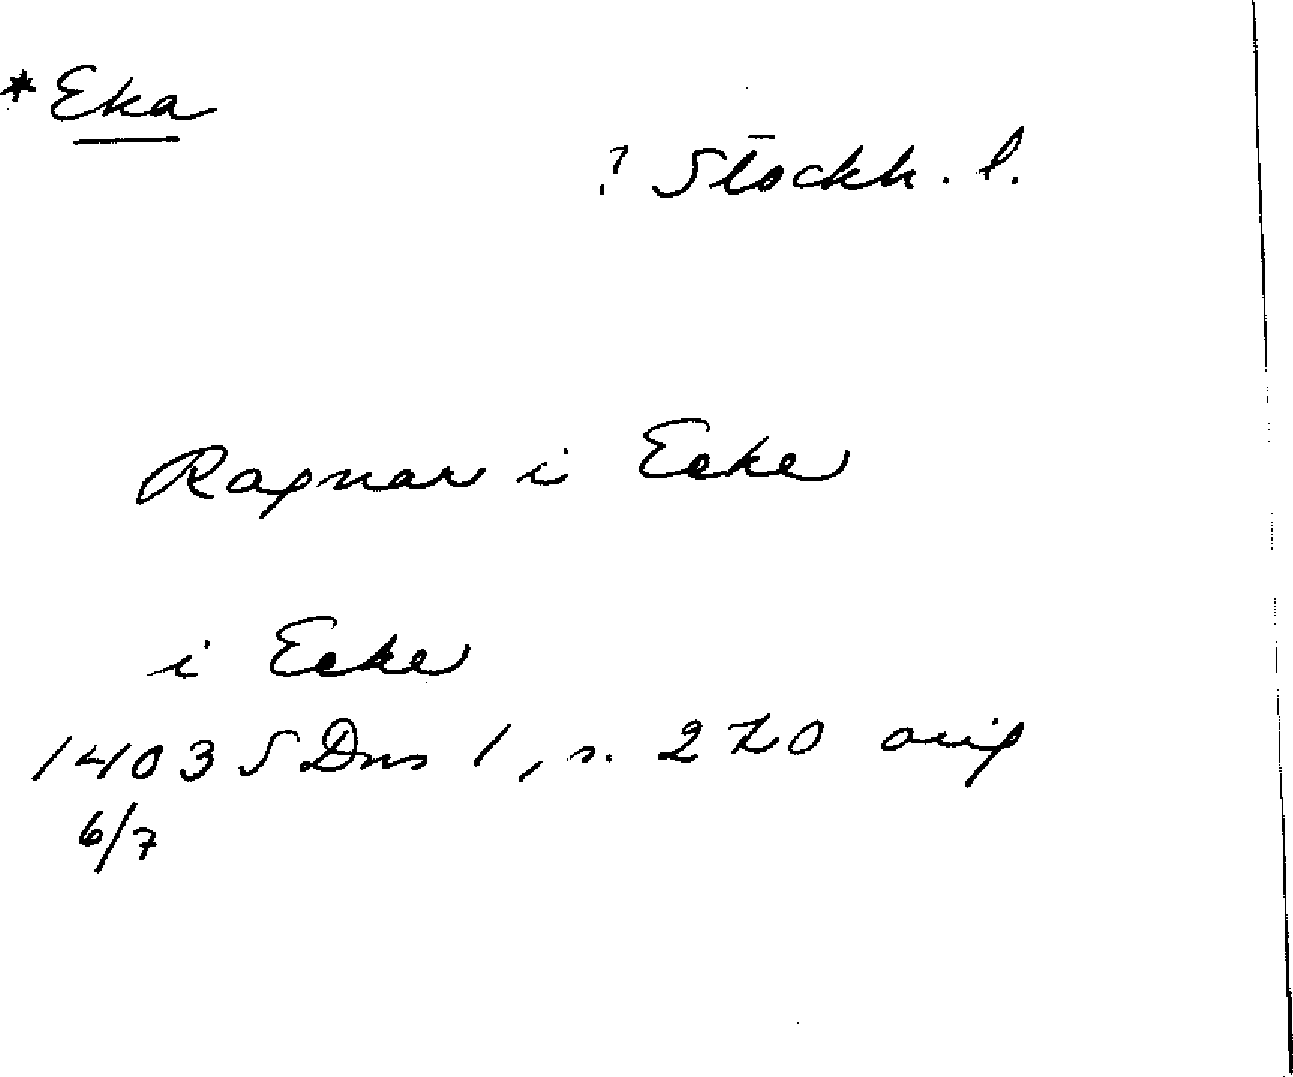 *Eka
? Stockh. l.
Ragnar i Ecke
i Ecke
1403 SDns 1, s. 270 orig
6/7